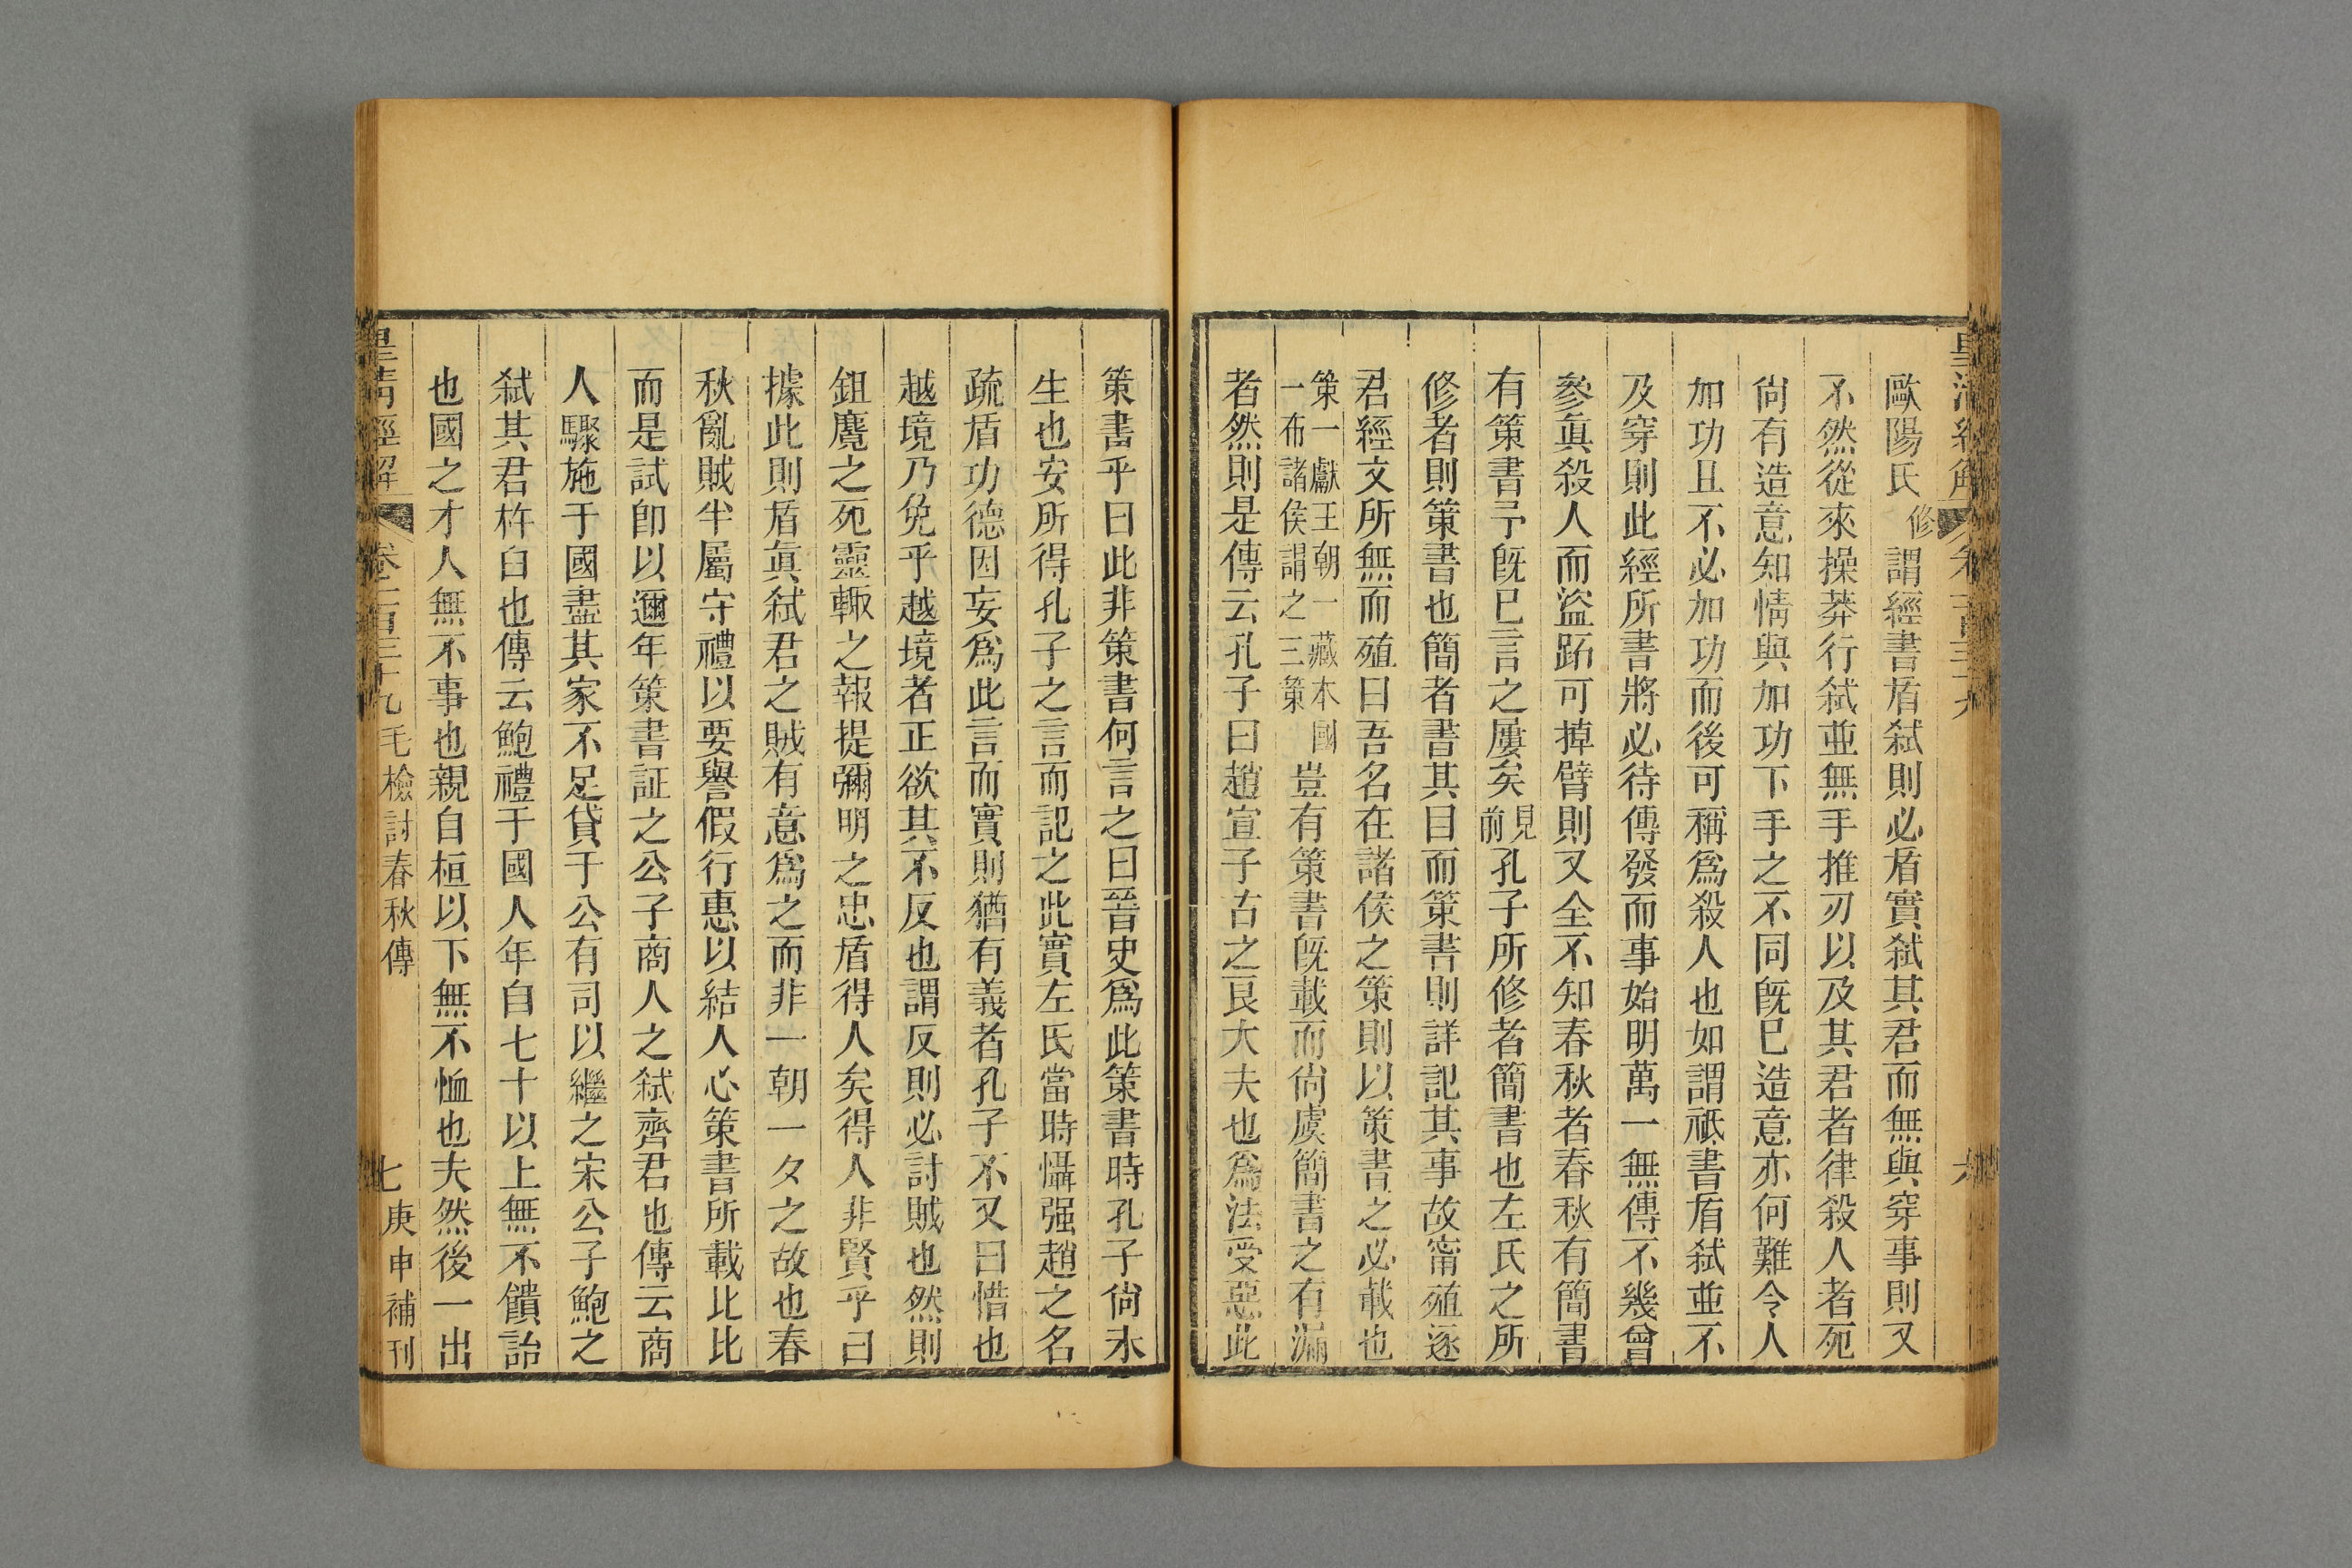 歐陽氏修謂經書盾弑則必盾實弑其君而無與穿事則又
不然從來操莽行弑並無手推刃以及其君者律殺人者死
尙有造意知情與加功下手之不同旣巳造意亦何難令人
加功且不必加功而後可稱爲殺人也如謂祗書盾弑並不
及穿則此經所書將必待傳發而事始明萬一無傳不幾曾
參眞殺人而盜跖可掉臂則又全不知春秋者春秋有簡書
有策書予旣巳言之屢矣見前孔子所修者簡書也左氏之所
修者則策書也簡者書其目而策書則詳記其事故甯殖逐
君經文所無而殖曰吾名在諸侯之策則以策書之必載也
策一獻王朝一藏本國一布諸侯謂之三策豈有策書旣載而尙虞簡書之有漏
者然則是傳云孔子曰趙宣子古之良大夫也爲法受惡此
策書乎曰此非策書何言之曰晉史爲此策書時孔子尙未
生也安所得孔子之言而記之此實左氏當時懾强趙之名
疏盾功德因妄爲此言而實則猶有義者孔子不又曰惜也
越境乃免乎越境者正欲其不反也謂反則必討賊也然則
鉏麑之死靈輒之報提彌明之忠盾得人矣得人非賢乎曰
據此則盾眞弑君之賊有意爲之而非一朝一夕之故也春
秋亂賊半屬守禮以要譽假行惠以結人心策書所載比比
而是試卽以邇年策書証之公子商人之弑齊君也傳云商
人驟施于國盡其家不足貸于公有司以繼之宋公子鮑之
弑其君杵臼也傳云鮑禮于國人年自七十以上無不饋詒
也國之才人無不事也親自桓以下無不恤也夫然後一出
皇清經解 卷一百三十九 毛檢討春秋傳 七 庚申補刊